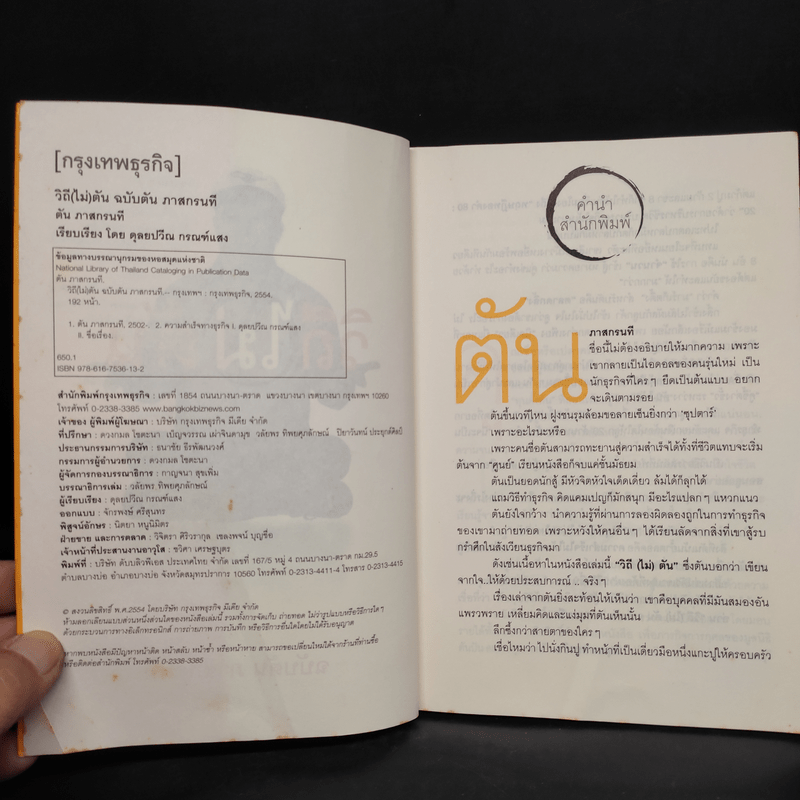 [กรุงเทพธุรกิจ]
วิถี(ไม่)ตัน ฉบับตัน ภาสกรนที
ตัน ภาสกรนที
เรียบเรียง โดย ดุลยปวีณ กรณฑ์แสง
ข้อมูลทางบรรณานุกรมของหอสมุดแห่งชาติ
National Library of Thailand Cataloging in Publication Data
ตัน ภาสกรนที.
วิถี(ไม่)ตัน ฉบับตัน ภาสกรนที.-- กรุงเทพฯ : กรุงเทพธุรกิจ, 2554.
192 หน้า.
1. ตัน ภาสกรนที, 2502-. 2. ความสำเร็จทางธุรกิจ I. ดุลยปวีณ กรณฑ์แสง
II. ชื่อเรื่อง.
650.1
ISBN 978-616-7536-13-2
สำนักพิมพ์กรุงเทพธุรกิจ : เลขที่ 1854 ถนนบางนา-ตราด แขวงบางนา เขตบางนา กรุงเทพฯ 10260
โทรศัพท์ 0-2338-3385 www.bangkokbiznews.com
เจ้าของ ผู้พิมพ์ผู้โฆษณา : บริษัท กรุงเทพธุรกิจ มีเดีย จำกัด
ที่ปรึกษา : ดวงกมล โชตะนา เบ็ญจวรรณ เผ่าจินดามุข วลัยพร ทิพยศุภลักษณ์ ปิยาวันทน์ ประยุกต์ศิลป์
ประธานกรรมการบริษัท : ธนาชัย ธีรพัฒนวงศ์
กรรมการผู้อำนวยการ : ดวงกมล โชตะนา
ผู้จัดการกองบรรณาธิการ : กาญจนา สุขเพิ่ม
บรรณาธิการเล่ม : วลัยพร ทิพยศุภลักษณ์
ผู้เรียบเรียง : ดุลยปวีณ กรณฑ์แสง
ออกแบบ : จักรพงษ์ ศรีสุนทร
พิสูจน์อักษร : นิตยา หนูนิมิตร
ฝ่ายขาย และการตลาด : วิจิตรา ศิริวรากุล เชลงพจน์ บุญซื่อ
เจ้าหน้าที่ประสานงานอาวุโส : ชวิศา เศรษฐบุตร
พิมพ์ที่ : บริษัท ดับบลิวพีเอส ประเทศไทย จำกัด เลขที่ 167/5 หมู่ 4 ถนนบางนา-ตราด กม.29.5
ตำบลบางบ่อ อำเภอบางบ่อ จังหวัดสมุทรปราการ 10560 โทรศัพท์ 0-2313-4411-4 โทรสาร 0-2313-4415
© สงวนลิขสิทธิ์ พ.ศ.2554 โดยบริษัท กรุงเทพธุรกิจ มีเดีย จำกัด
ห้ามลอกเลียนแบบส่วนหนึ่งส่วนใดของหนังสือเล่มนี้ รวมทั้งการจัดเก็บ ถ่ายทอด ไม่ว่ารูปแบบหรือวิธีการใดๆ
ด้วยกระบวนการทางอิเล็กทรอนิกส์ การถ่ายภาพ การบันทึก หรือวิธีการอื่นใดโดยไม่ได้รับอนุญาต
หากพบหนังสือมีปัญหาหน้าติด หน้าสลับ หน้าซ้ำ หรือหน้าหาย สามารถขอเปลี่ยนใหม่ได้จากร้านที่ท่านซื้อ
หรือติดต่อสำนักพิมพ์ โทรศัพท์ 0-2338-3385
คำนำ
สำนักพิมพ์
ตัน
ภาสกรนที
ชื่อนี้ไม่ต้องอธิบายให้มากความ เพราะ
เขากลายเป็นไอดอลของคนรุ่นใหม่ เป็น
นักธุรกิจที่ใครๆ ยึดเป็นต้นแบบ อยาก
จะเดินตามรอย
ตันขึ้นเวทีไหน ฝูงชนรุมล้อมขอลายเซ็นยิ่งกว่า 'ซุปตาร์'
เพราะอะไรนะหรือ
เพราะคนชื่อตันสามารถทะยานสู่ความสำเร็จได้ทั้งที่ชีวิตแทบจะเริ่ม
ต้นจาก "ศูนย์" เรียนหนังสือก็จบแค่ชั้นมัธยม
ตันเป็นยอดนักสู้ มีหัวจิตหัวใจเด็ดเดี่ยว ล้มได้ก็ลุกได้
แถมวิธีทำธุรกิจ คิดแคมเปญก็มักสนุก มีอะไรแปลกๆ แหวกแนว
ตันยังใจกว้าง นำความรู้ที่ผ่านการลองผิดลองถูกในการทำธุรกิจ
ของเขามาถ่ายทอด เพราะหวังให้คนอื่นๆ ได้เรียนลัดจากสิ่งที่เขาสู้รบ
กรำศึกในสังเวียนธุรกิจมา
ดังเช่นเนื้อหาในหนังสือเล่มนี้ "วิถี (ไม่) ตัน" ซึ่งตันบอกว่า เขียน
จากใจ..ให้ด้วยประสบการณ์ .. จริงๆ
เรื่องเล่าจากตันยิ่งสะท้อนให้เห็นว่า เขาคือบุคคลที่มีมันสมองอัน
แพรวพราย เหลี่ยมคิดและแง่มุมที่ตันเห็นนั้น
ลึกซึ้งกว่าสายตาของใครๆ
เชื่อไหมว่า ไปนั่งกินปู ทำหน้าที่เป็นเดี่ยวมือหนึ่งแกะปูให้ครอบครัว